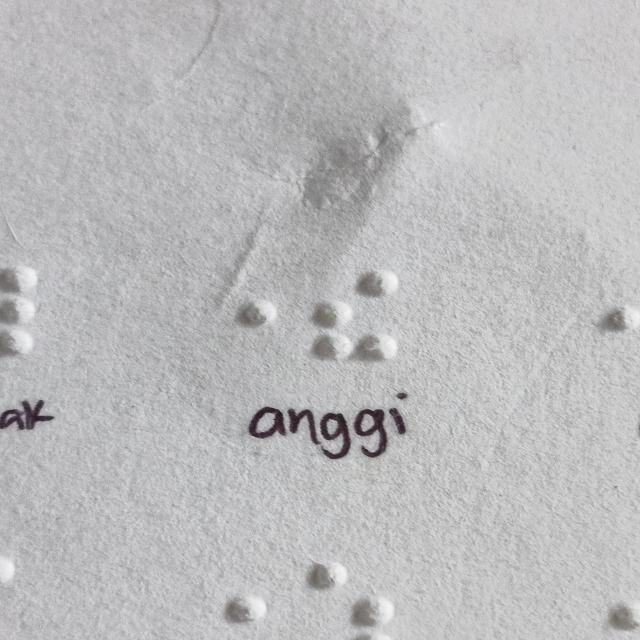 ⠐⠮
ak anggi